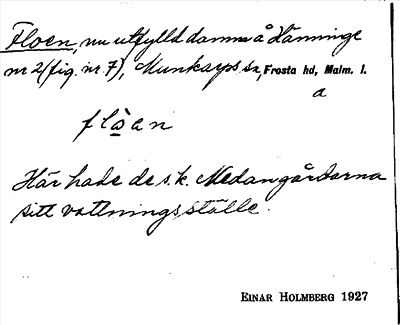 Floen, nu utfylld damm å Hänninge
nr 2 (fig. nr 7), Munkarps sn, Frosta hd, Malm. l.
a
flòan
Här hade de s.k. Medangårdarna
sitt vattningsställe.
EINAR HOLMBERG 1927